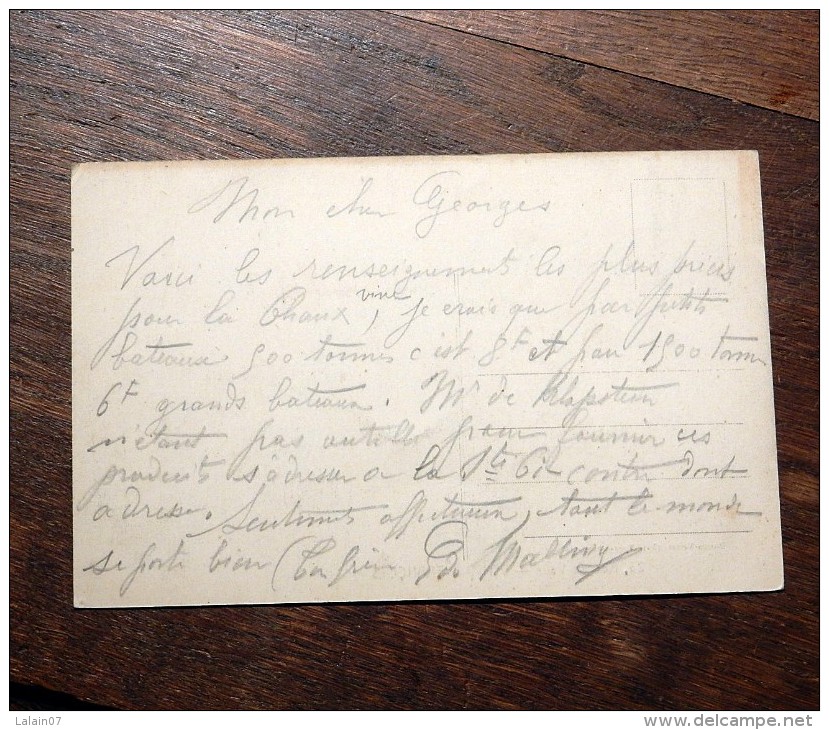 Mon cher Georges
Voici les renseignements les plus précis
pour la Chaux vive, je crois que par petits
bateaux 500 tonnes c'est 8F et par 1500 tonnes
6F grands bateaux. Mr de
n'étant pas outillé pour fournir ces
produits s'adresser à la Sté Cie contre dont
adresse. Sentiments affectueux, tout le monde
se porte bien Ton frère
Lalain07
www.delcampe.net